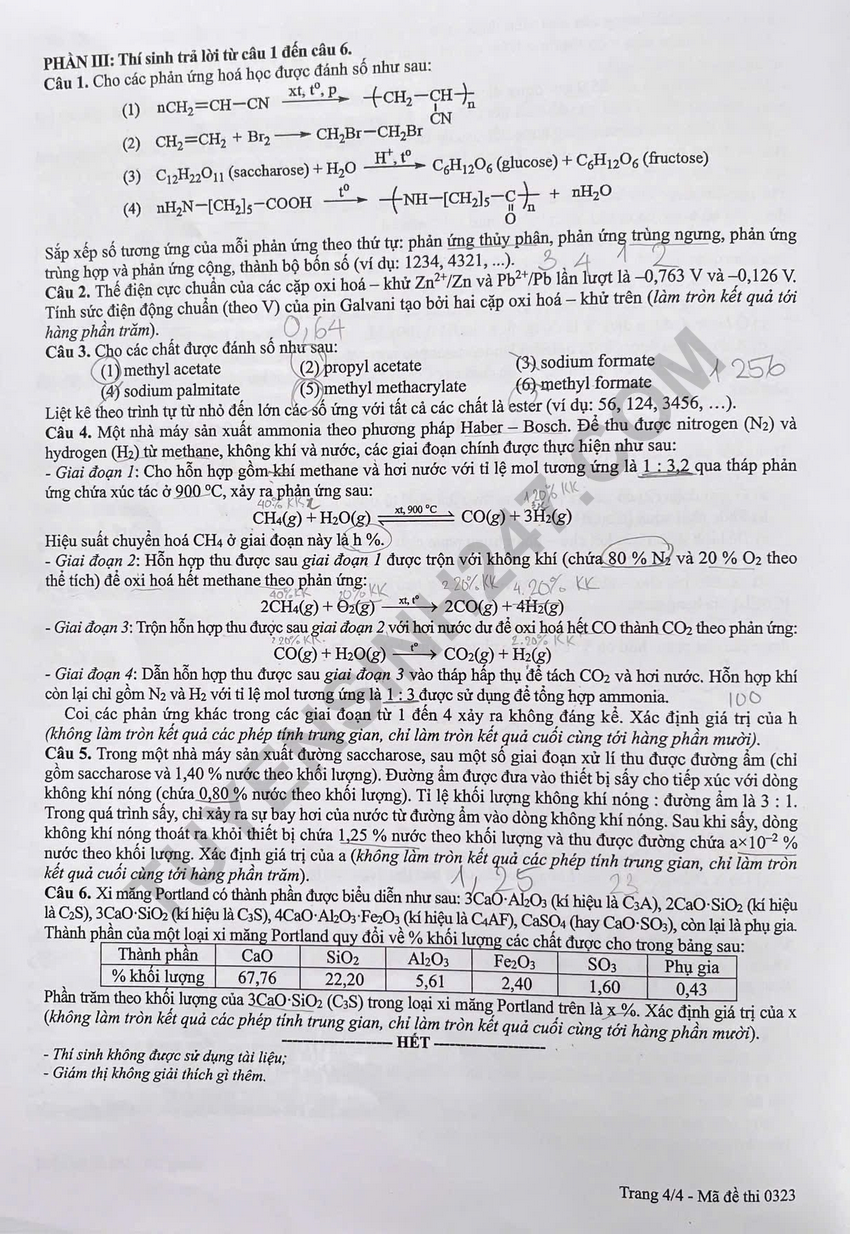 PHẦN III: Thí sinh trả lời từ câu 1 đến câu 6.
Câu 1. Cho các phản ứng hoá học được đánh số như sau:
(1) nCH₂=CH−CN xt, t⁰, p → −(CH₂−CH(CN))−ₙ
(2) CH₂=CH₂ + Br₂ → CH₂Br−CH₂Br
(3) C₁₂H₂₂O₁₁ (saccharose) + H₂O H⁺, t⁰ → C₆H₁₂O₆ (glucose) + C₆H₁₂O₆ (fructose)
(4) nH₂N−[CH₂]₅−COOH t⁰ → −(NH−[CH₂]₅−C(=O))−ₙ + nH₂O
Sắp xếp số tương ứng của mỗi phản ứng theo thứ tự: phản ứng thủy phân, phản ứng trùng ngưng, phản ứng
trùng hợp và phản ứng cộng, thành bộ bốn số (ví dụ: 1234, 4321, ...). 3 4 1 2
Câu 2. Thế điện cực chuẩn của các cặp oxi hoá – khử Zn²⁺/Zn và Pb²⁺/Pb lần lượt là –0,763 V và –0,126 V.
Tính sức điện động chuẩn (theo V) của pin Galvani tạo bởi hai cặp oxi hoá – khử trên (làm tròn kết quả tới
hàng phần trăm). 0,64
Câu 3. Cho các chất được đánh số như sau:
(1) methyl acetate (2) propyl acetate (3) sodium formate
(4) sodium palmitate (5) methyl methacrylate (6) methyl formate 1 256
Liệt kê theo trình tự từ nhỏ đến lớn các số ứng với tất cả các chất là ester (ví dụ: 56, 124, 3456, …).
Câu 4. Một nhà máy sản xuất ammonia theo phương pháp Haber – Bosch. Để thu được nitrogen (N₂) và
hydrogen (H₂) từ methane, không khí và nước, các giai đoạn chính được thực hiện như sau:
- Giai đoạn 1: Cho hỗn hợp gồm khí methane và hơi nước với tỉ lệ mol tương ứng là 1 : 3,2 qua tháp phản
ứng chứa xúc tác ở 900 ⁰C, xảy ra phản ứng sau:
CH₄(g) + H₂O(g) xt, 900 ⁰C ⇌ CO(g) + 3H₂(g)
Hiệu suất chuyển hoá CH₄ ở giai đoạn này là h %.
- Giai đoạn 2: Hỗn hợp thu được sau giai đoạn 1 được trộn với không khí (chứa 80 % N₂ và 20 % O₂ theo
thể tích) để oxi hoá hết methane theo phản ứng:
40%KK 20%KK 2.20%KK 4.20%KK
2CH₄(g) + O₂(g) xt, t⁰ → 2CO(g) + 4H₂(g)
- Giai đoạn 3: Trộn hỗn hợp thu được sau giai đoạn 2 với hơi nước dư để oxi hoá hết CO thành CO₂ theo phản ứng:
CO(g) + H₂O(g) t⁰ → CO₂(g) + H₂(g)
- Giai đoạn 4: Dẫn hỗn hợp thu được sau giai đoạn 3 vào tháp hấp thụ để tách CO₂ và hơi nước. Hỗn hợp khí
còn lại chỉ gồm N₂ và H₂ với tỉ lệ mol tương ứng là 1 : 3 được sử dụng để tổng hợp ammonia. 100
Coi các phản ứng khác trong các giai đoạn từ 1 đến 4 xảy ra không đáng kể. Xác định giá trị của h
(không làm tròn kết quả các phép tính trung gian, chỉ làm tròn kết quả cuối cùng tới hàng phần mười).
Câu 5. Trong một nhà máy sản xuất đường saccharose, sau một số giai đoạn xử lí thu được đường ẩm (chỉ
gồm saccharose và 1,40 % nước theo khối lượng). Đường ẩm được đưa vào thiết bị sấy cho tiếp xúc với dòng
không khí nóng (chứa 0,80 % nước theo khối lượng). Tỉ lệ khối lượng không khí nóng : đường ẩm là 3 : 1.
Trong quá trình sấy, chỉ xảy ra sự bay hơi của nước từ đường ẩm vào dòng không khí nóng. Sau khi sấy, dòng
không khí nóng thoát ra khỏi thiết bị chứa 1,25 % nước theo khối lượng và thu được đường chứa a×10⁻² %
nước theo khối lượng. Xác định giá trị của a (không làm tròn kết quả các phép tính trung gian, chỉ làm tròn
kết quả cuối cùng tới hàng phần trăm). 1,25 23
Câu 6. Xi măng Portland có thành phần được biểu diễn như sau: 3CaO·Al₂O₃ (kí hiệu là C₃A), 2CaO·SiO₂ (kí hiệu
là C₂S), 3CaO·SiO₂ (kí hiệu là C₃S), 4CaO·Al₂O₃·Fe₂O₃ (kí hiệu là C₄AF), CaSO₄ (hay CaO·SO₃), còn lại là phụ gia.
Thành phần của một loại xi măng Portland quy đổi về % khối lượng các chất được cho trong bảng sau:
Thành phần CaO SiO₂ Al₂O₃ Fe₂O₃ SO₃ Phụ gia
% khối lượng 67,76 22,20 5,61 2,40 1,60 0,43
Phần trăm theo khối lượng của 3CaO·SiO₂ (C₃S) trong loại xi măng Portland trên là x %. Xác định giá trị của x
(không làm tròn kết quả các phép tính trung gian, chỉ làm tròn kết quả cuối cùng tới hàng phần mười).
HẾT
- Thí sinh không được sử dụng tài liệu;
- Giám thị không giải thích gì thêm.
Trang 4/4 - Mã đề thi 0323
TUYENSINH247.COM